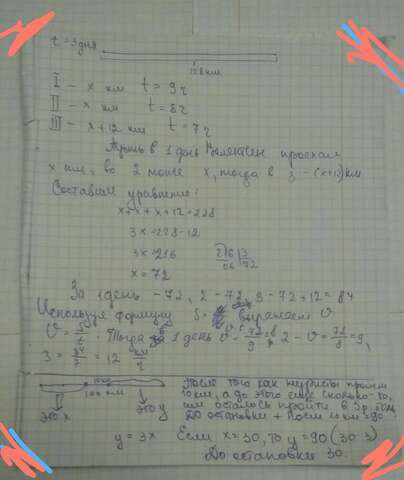 t = 3 дня
228 км
I - x км t = 9 ч
II - x км t = 8 ч
III - x + 12 км t = 7 ч
в 1 день проехал
x км, во 2 тоже x, тогда в 3 - (x+12) км
Составим уравнение:
x + x + x + 12 = 228
3x = 228 - 12
3x = 216
x = 72
216 3
06 72
За 1 день - 72, 2 - 72, 3 - 72 + 12 = 84
Используя формулу S = выражаем V
Тогда 1 день V = 72/9 = 8, 2 - V = 72/8 = 9,
3 = 84/7 = 12 км/ч
100 км
это x это y
После того как туристы прошли
10 км, а до этого еще сколько-то,
им осталось пройти в 3 р.
До остановки + после 10 км = 90
y = 3x Если x = 30, то y = 90 (30·3)
До остановки 30.